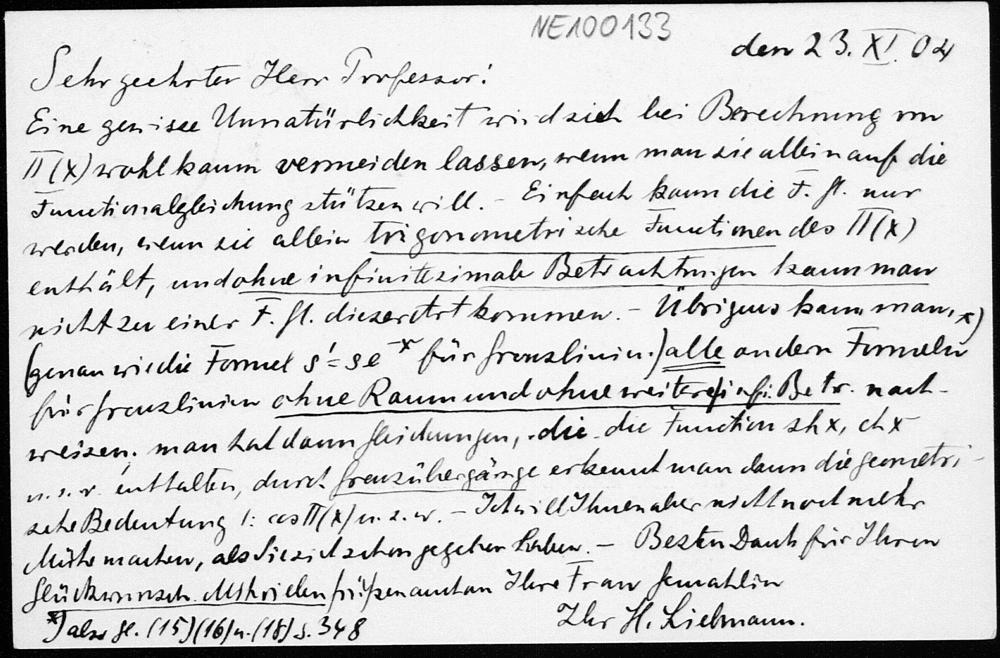 NE100133
den 23. XI. 04
Sehr geehrter Herr Professor!
Eine gewisse Unnatürlichkeit wird sich bei Berechnung von
Π(x) wohl kaum vermeiden lassen, wenn man sie allein auf die
Functionalgleichung stützen will. – Einfach kann die F. Gl. nur
werden, wenn sie allein trigonometrische Functionen des Π(x)
enthält, und ohne infinitesimale Betrachtungen kann man
nicht zu einer F. Gl. dieser Art kommen. – Übrigens kann man, *)
(genau wie die Formel s' = se^-x für Grenzlinien.) alle andern Formeln
für Grenzlinien ohne Raum und ohne weitere inf. Betr. nach-
weisen. man hat dann Gleichungen, die die Function sh x, ch x
u. s. w. enthalten, durch Grenzübergänge erkennt man dann die geometri-
sche Bedeutung 1: cos Π(x) u. s. w. – Ich will Ihnen aber nicht noch mehr
Mühe machen, als Sie sich schon gegeben haben. – Besten Dank für Ihren
Glückwunsch. Mit vielen Grüßen auch an Ihre Frau Gemahlin
Ihr H. Liebmann.
*) also Gl. (15) (16) u. (18) S. 348